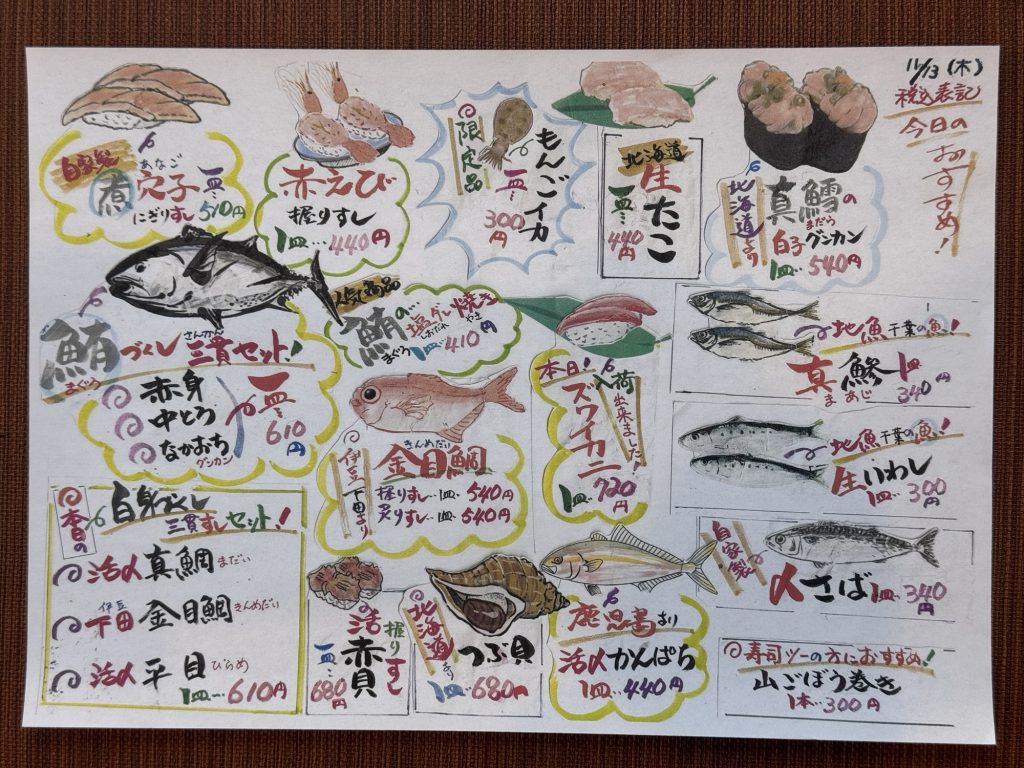 11/13 (木)
税込表記
今日の
おすすめ!
自家製
煮
あなご
穴子
にぎりすし
一皿… 510円
赤えび
握りすし
1皿…440円
限定品
もんごイカ
一皿…
300円
北海道
生たこ
一皿…
440円
北海道より
真鱈の
まだら
白子グンカン
1皿…540円
鮪づくし
まぐろ
さんかん
三貫セット!
赤身
中とろ
なかおち
グンカン
一皿…
610円
人気商品
鮪の…
まぐろ
塩ダレ焼き
しおだれ やき
1皿…410円
伊豆下田より
きんめだい
金目鯛
握りすし…1皿…540円
炙りすし…1皿…540円
本日!
入荷出来ました!
ズワイカニ
1皿…720円
地魚 千葉の魚!
真鯵
ま あじ
1皿
340円
地魚 千葉の魚!
生いわし
1皿…300円
自家製
〆さば 1皿…340円
本日の
白身づくし
三貫すしセット!
活〆 真鯛 まだい
伊豆
下田 金目鯛 きんめだい
活〆 平目 ひらめ
1皿…610円
活赤貝
握りすし
一皿…
680円
北海道より
つぶ貝
1皿…680円
鹿児島より
活〆かんぱち
1皿…440円
寿司ツーの方におすすめ!
山ごぼう巻き
1本…300円